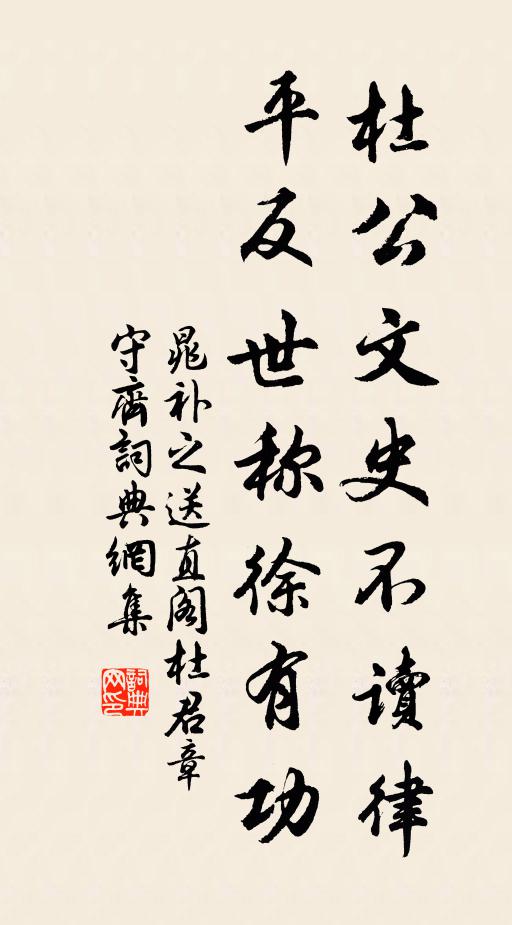 杜公文史不讀律
平反世称徐有功
晁补之送直阁杜君章
守齋詞典網集
詞典網印